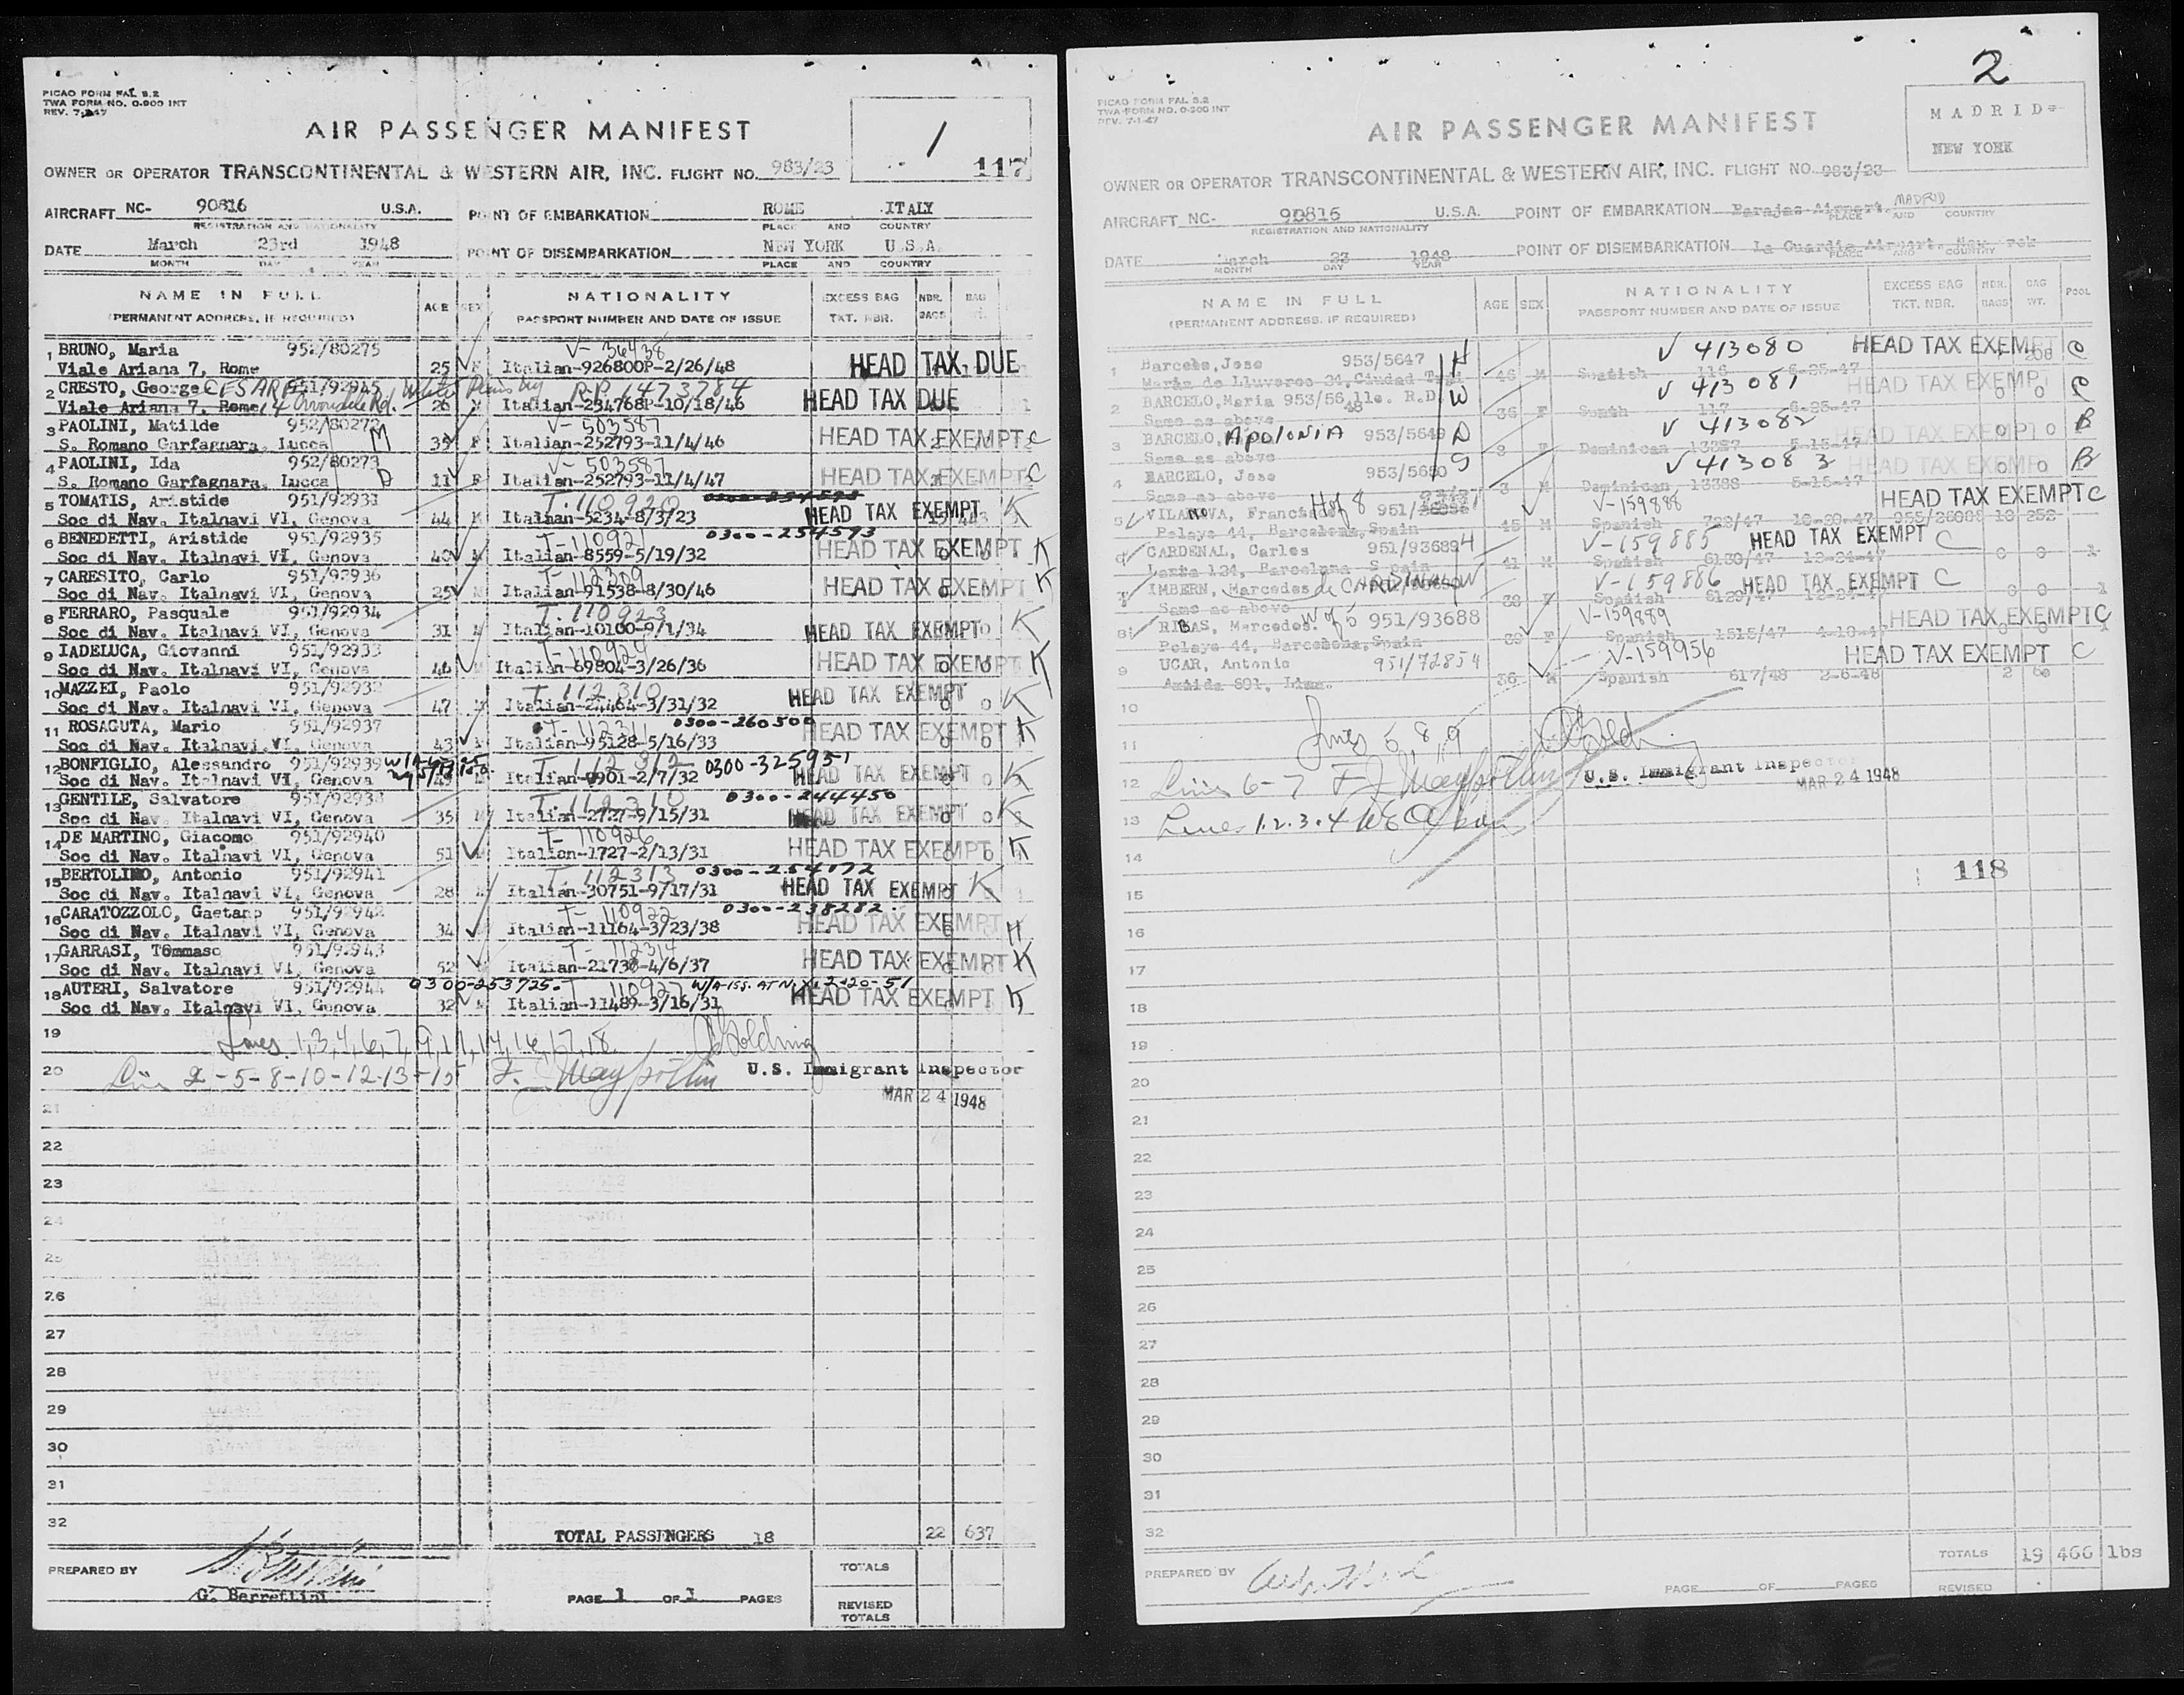 PICAO FORM FAL 8.2
TWA FORM NO. 0-900 INT
REV. 7-1-47
AIR PASSENGER MANIFEST
1
117
OWNER OR OPERATOR TRANSCONTINENTAL & WESTERN AIR, INC. FLIGHT NO. 983/23
AIRCRAFT NC- 90816 U.S.A. POINT OF EMBARKATION ROME ITALY
REGISTRATION AND NATIONALITY PLACE AND COUNTRY
DATE March 23rd 1948 POINT OF DISEMBARKATION NEW YORK U.S.A.
MONTH DAY YEAR PLACE AND COUNTRY
NAME IN FULL AGE SEX NATIONALITY EXCESS BAG NBR. BAG
(PERMANENT ADDRESS, IF REQUIRED) PASSPORT NUMBER AND DATE OF ISSUE TKT. NBR. BAGS WT.
1 BRUNO, Maria 952/80275 V- 36438
Viale Ariana 7, Rome 25 F Italian-926800P-2/26/48 HEAD TAX DUE
2 CRESTO, George CESARE 951/92945 White Plains ny R.P. 1473784
Viale Ariana 7, Rome 14 Rd. 26 M Italian-234768P-10/18/46 HEAD TAX DUE
3 PAOLINI, Matilde 952/80272 M V- 503587
S. Romano Garfagnara, Lucca 39 F Italian-252793-11/4/46 HEAD TAX EXEMPT C
4 PAOLINI, Ida 952/80273 D V- 503587
S. Romano Garfagnara, Lucca 11 F Italian-252793-11/4/47 HEAD TAX EXEMPT C
5 TOMATIS, Aristide 951/92931 T. 110920
Soc di Nav. Italnavi VI, Genova 44 M Italian-5234-8/3/23 HEAD TAX EXEMPT K
6 BENEDETTI, Aristide 951/92935 T-110921 0300-254593
Soc di Nav. Italnavi VI, Genova 40 M Italian-8559-5/19/32 HEAD TAX EXEMPT K
7 CARESITO, Carlo 951/92936 T- 112309
Soc di Nav. Italnavi VI, Genova 25 M Italian-91538-8/30/46 HEAD TAX EXEMPT K
8 FERRARO, Pasquale 951/92934 T. 110923
Soc di Nav. Italnavi VI, Genova 31 M Italian-10100-9/1/34 HEAD TAX EXEMPT K
9 IADELUCA, Giovanni 951/92933 T-110924
Soc di Nav. Italnavi VI, Genova 46 M Italian-69804-3/26/36 HEAD TAX EXEMPT K
10 MAZZEI, Paolo 951/92932 T. 112310
Soc di Nav. Italnavi VI, Genova 47 M Italian-24464-3/31/32 HEAD TAX EXEMPT K
11 ROSAGUTA, Mario 951/92937 T- 112311 0300-260500
Soc di Nav. Italnavi VI, Genova 43 M Italian-95128-5/16/33 HEAD TAX EXEMPT K
12 BONFIGLIO, Alessandro 951/92939 T 112312 0300-325951
Soc di Nav. Italnavi VI, Genova Italian-9901-2/7/32 HEAD TAX EXEMPT K
13 GENTILE, Salvatore 951/92938 T. 112310 0300-244450
Soc di Nav. Italnavi VI, Genova 35 M Italian-2727-9/15/31 HEAD TAX EXEMPT K
14 DE MARTINO, Giacomo 951/92940 T- 110926
Soc di Nav. Italnavi VI, Genova 51 M Italian-1727-2/13/31 HEAD TAX EXEMPT K
15 BERTOLINO, Antonio 951/92941 T. 112313 0300-254172
Soc di Nav. Italnavi VI, Genova 28 M Italian-30751-9/17/31 HEAD TAX EXEMPT K
16 CARATOZZOLO, Gaetano 951/92942 T- 110922 0300-238282
Soc di Nav. Italnavi VI, Genova 34 M Italian-11164-3/23/38 HEAD TAX EXEMPT K
17 GARRASI, Tommaso 951/92943 T- 112314
Soc di Nav. Italnavi VI, Genova 52 M Italian-21738-4/6/37 HEAD TAX EXEMPT K
18 AUTERI, Salvatore 951/92944 0300-253725- T 110927 W/A-ISS. AT N.Y. 2-20-51
Soc di Nav. Italnavi VI, Genova 32 M Italian-11489-3/16/31 HEAD TAX EXEMPT K
19 Lines 1,3,4,6,7,9,11,14,16,17,18. Golding
20 Line 2-5-8-10-12-13-15 U.S. Immigrant Inspector
21 MAR 24 1948
22
23
24
25
26
27
28
29
30
31
32 TOTAL PASSENGERS 18 22 637
PREPARED BY TOTALS
G. Berrettini PAGE 1 OF 1 PAGES
REVISED
TOTALS
2
PICAO FORM FAL 8.2
TWA FORM NO. 0-900 INT
REV. 7-1-47
MADRID-
NEW YORK
AIR PASSENGER MANIFEST
OWNER OR OPERATOR TRANSCONTINENTAL & WESTERN AIR, INC. FLIGHT NO. 983/23
AIRCRAFT NC- 90816 U.S.A. POINT OF EMBARKATION Barajas Airport, MADRID
REGISTRATION AND NATIONALITY PLACE AND COUNTRY
DATE March 23 1948 POINT OF DISEMBARKATION La Guardia Airport, New York
MONTH DAY YEAR PLACE AND COUNTRY
NAME IN FULL AGE SEX NATIONALITY EXCESS BAG NBR. BAG POOL
(PERMANENT ADDRESS, IF REQUIRED) PASSPORT NUMBER AND DATE OF ISSUE TKT. NBR. BAGS WT.
1 Barcelo, Jose 953/5647 H V 413080 HEAD TAX EXEMPT C
46 M Spanish 116 6-25-47
2 BARCELO, Maria 953/56 48 W V 413081 HEAD TAX EXEMPT C
Same as above 36 F 117 6-25-47
3 BARCELO, ApoloNiA 953/5649 D V 413082 HEAD TAX EXEMPT B
Same as above F Dominican 13387 5-15-47
4 BARCELO, Jose 953/5650 S V 413083 HEAD TAX EXEMPT B
Same as above 3 M Dominican 13388 5-15-47
5 VILANOVA, Francisco H of 8 951/ V-159888 HEAD TAX EXEMPT C
Pelayo 44, Barcelona, Spain 45 M Spanish 10 252
CARDENAL, Carlos 951/93689 H V-159885 HEAD TAX EXEMPT C
124, Barcelona Spain 41 M Spanish 6130/47 12-24-47 0 0 1
IMBERN, Mercedes de CARDENAL W V-159886 HEAD TAX EXEMPT C
Same as above 38 F Spanish 6129/47 12-24-47 0 0 1
8 RIBAS, Mercedes W of 5 951/93688 V-159889 HEAD TAX EXEMPT C
Pelayo 44, Barcelona, Spain 39 F Spanish 1515/47
9 UCAR, Antonio 951/72854 V-159956 HEAD TAX EXEMPT C
691, Lima. 36 M Spanish 617/48 2-6-48 2 60
10
11 Lines 5,8,9 Golding
12 Lines 6-7 U.S. Immigrant Inspector
MAR 24 1948
13 Lines 1.2.3.4
14
118
15
16
17
18
19
20
21
22
23
24
25
26
27
28
29
30
31
32
TOTALS 19 466 lbs
PREPARED BY PAGE OF PAGES
REVISED